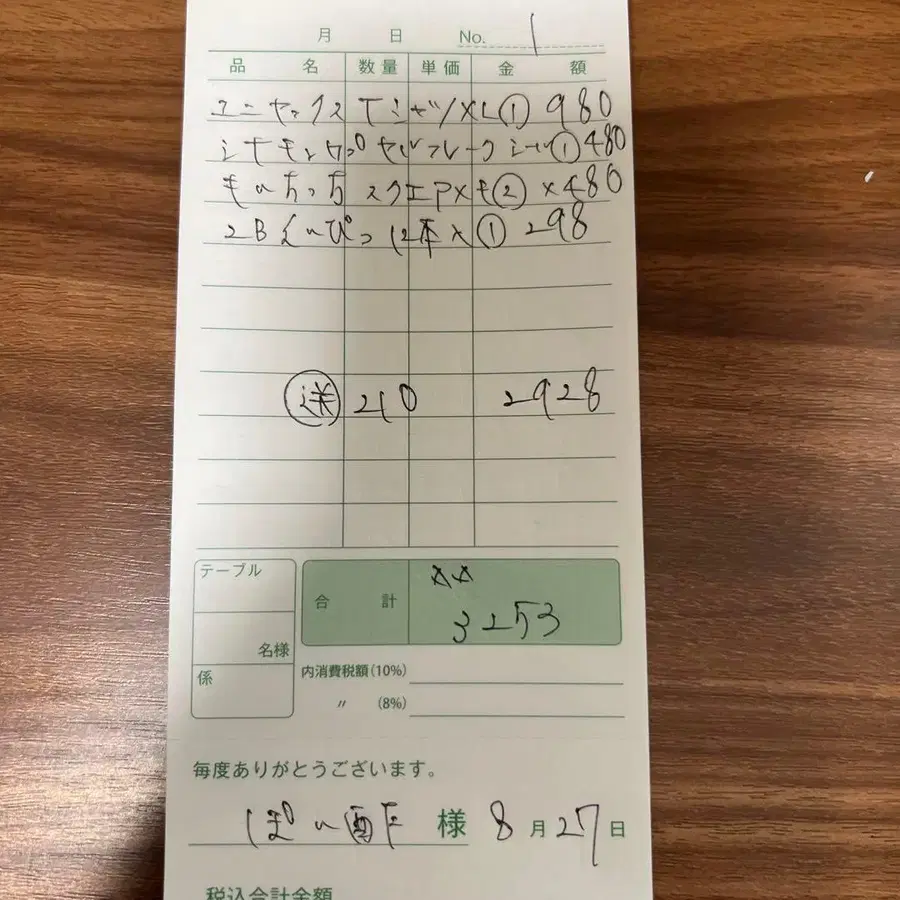 月 日 No. 1
品名 数量 単価 金額
ユニセックス Tシャツ/XL① 980
シナモンロール フレークシール① 480
スクエアメモ② ×480
2Bえんぴつ 12本×① 298
送 210 2928
テーブル
名様
係
合計
3253
内消費税額(10%)
〃 (8%)
毎度ありがとうございます。
様 8月27日
税込合計金額